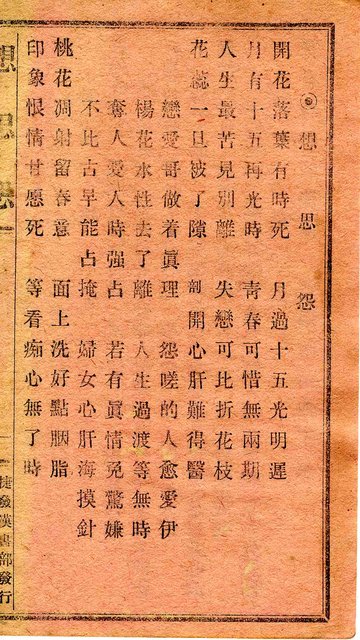 想思怨
開花落葉有時死　月過十五光明遲
月有十五再光時　青春可惜無兩期
人生最苦見別離　失戀可比折花枝
花蕊一旦被了隙　剖開心肝難得醫
戀愛哥做着眞理　怨嗟的人愈愛伊
楊花水性去了離　人生過渡等無時
奪人愛人時强占　若有眞情免驚嫌
不比古早能占掩　婦女心肝海摸針
桃花凋射留春意　面上洗好點胭脂
印象恨情甘愿死　等看痴心無了時
捷發漢書部發行